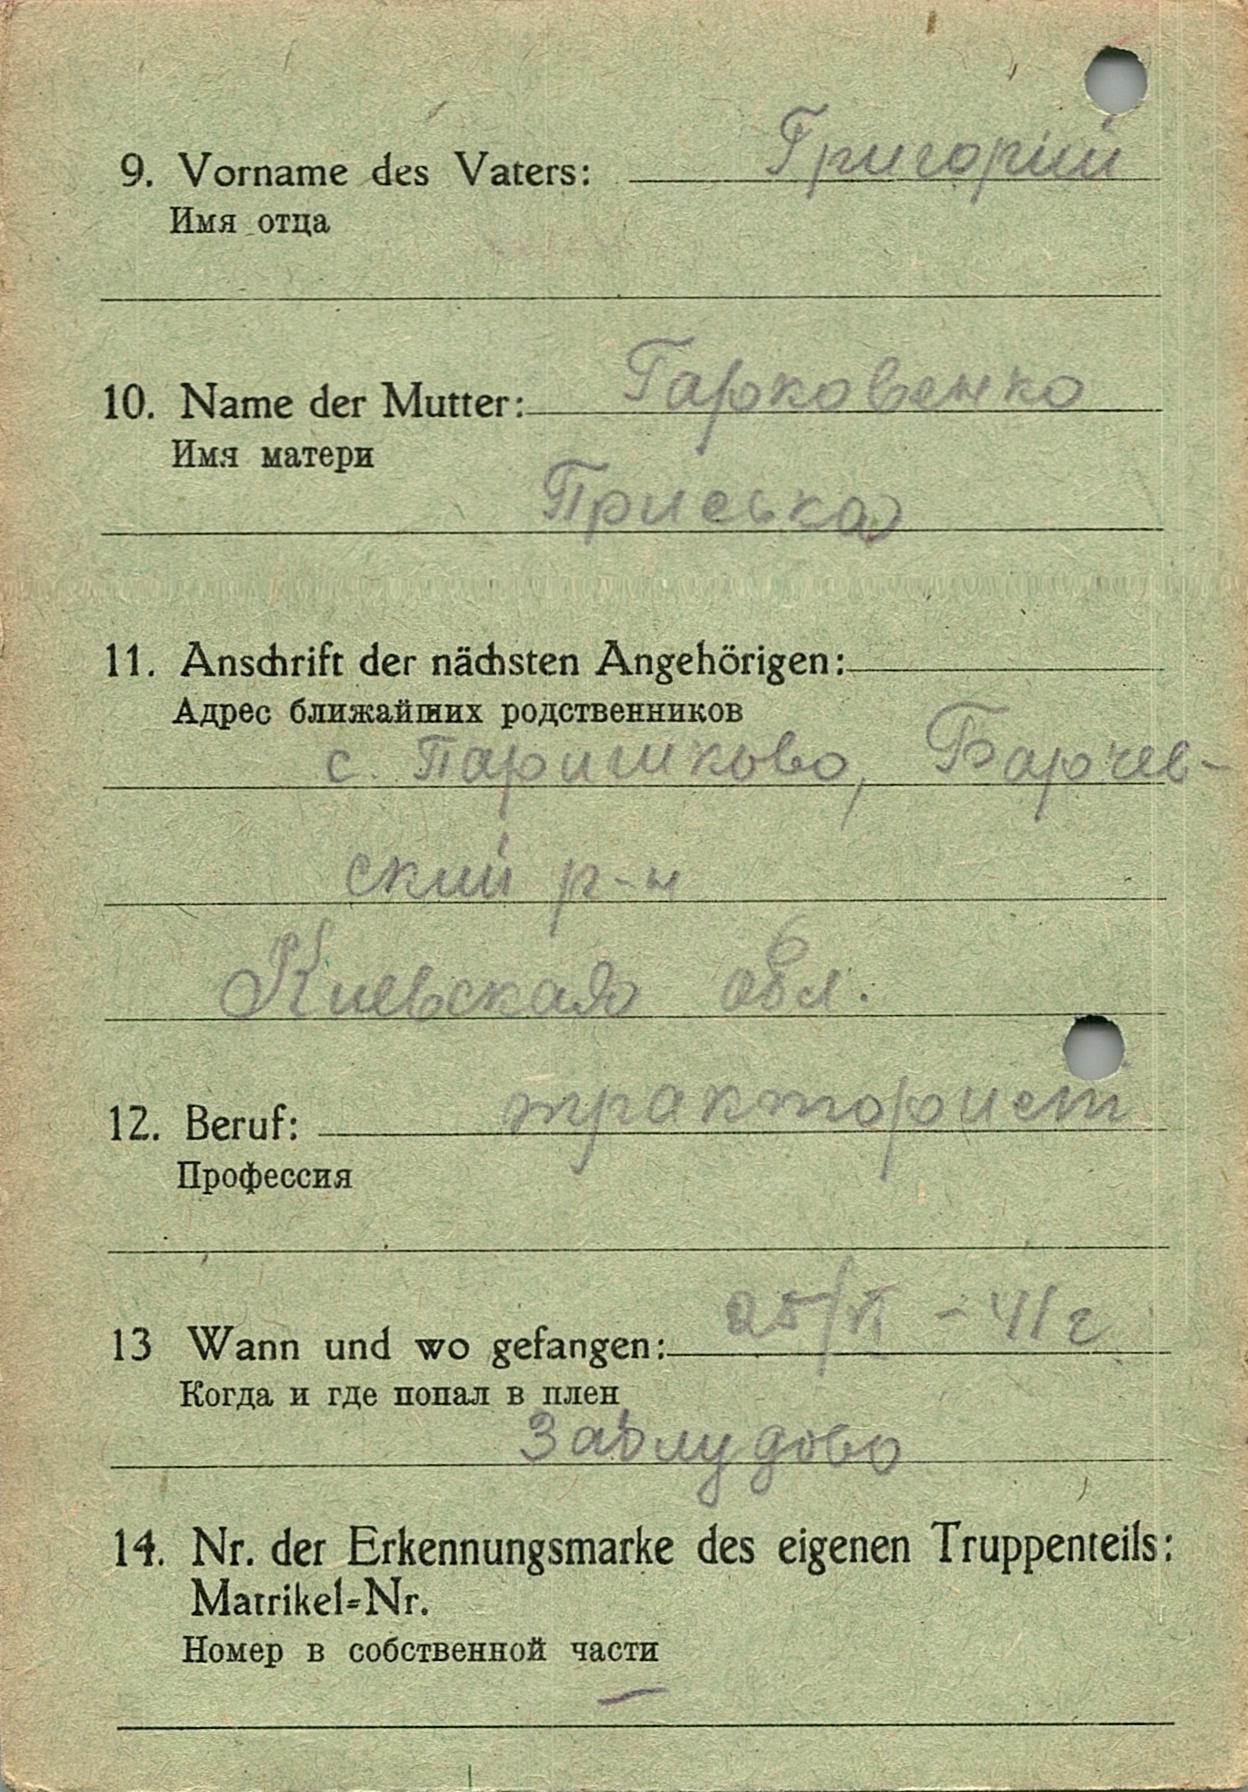 9. Vorname des Vaters: Григорий
Имя отца
10. Name der Mutter: Гарковенко
Имя матери
Приська
11. Anschrift der nächsten Angehörigen:
Адрес ближайших родственников
с. Паришково, Барчев-
ский р-н
Киевская обл.
12. Beruf: тракторист
Профессия
13 Wann und wo gefangen: 25/VI - 41 г
Когда и где попал в плен
Заблудово
14. Nr. der Erkennungsmarke des eigenen Truppenteils:
Matrikel=Nr.
Номер в собственной части
—